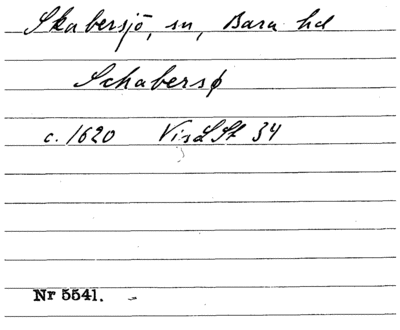 Skabersjö, sn, Bara hd
Schabersø
c. 1620 VisLSk 34
Nr 5541.